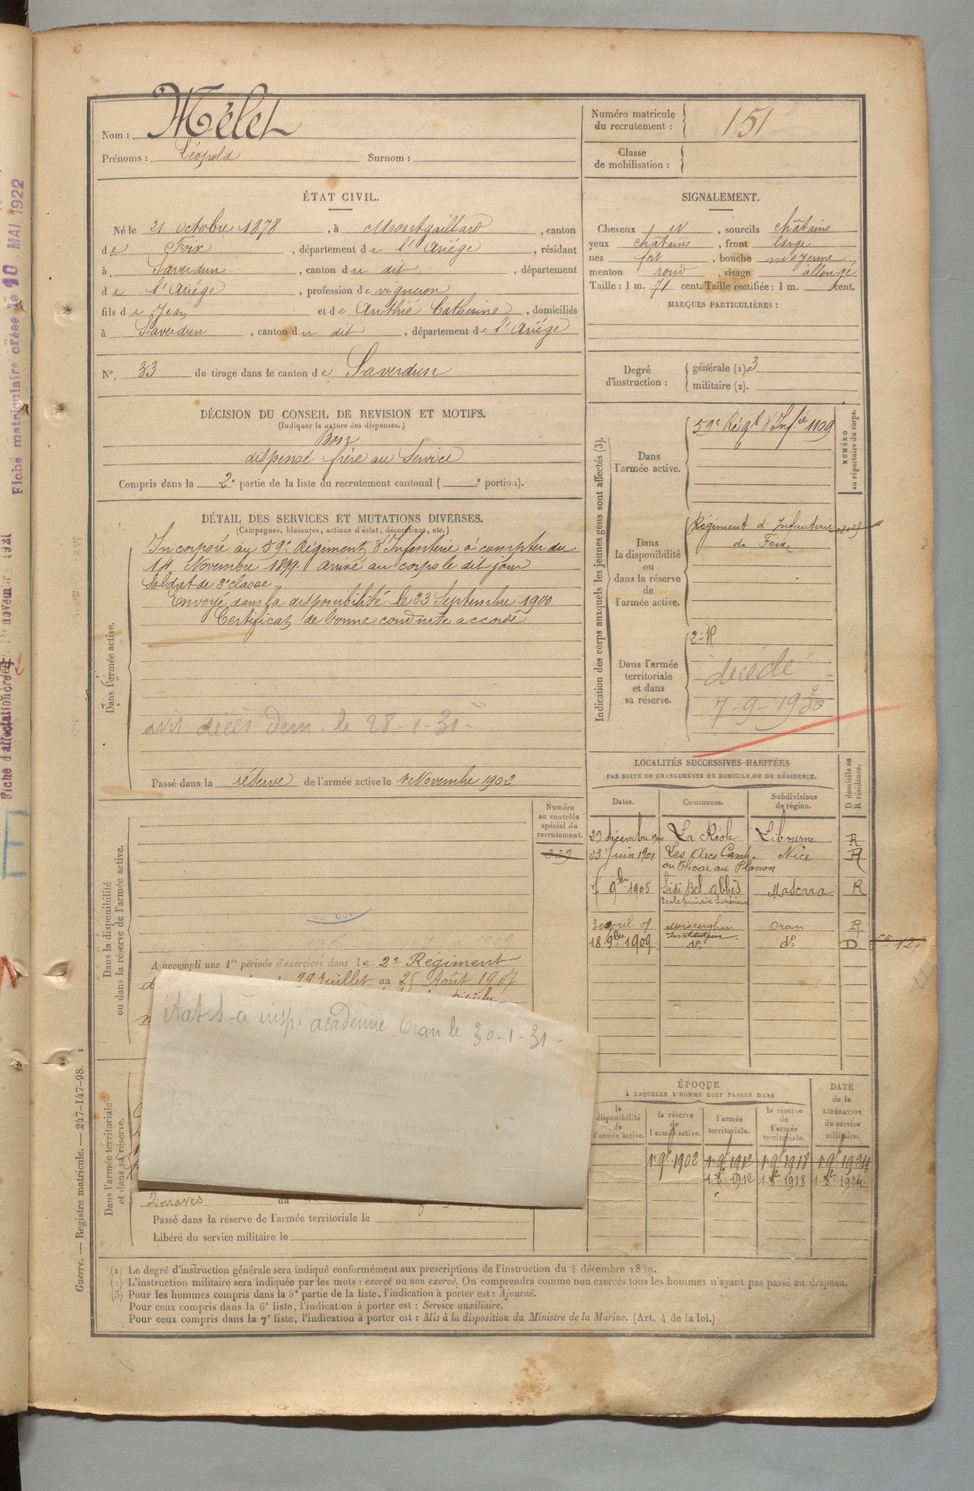 Nom : Mélet
Prénoms : Léopold Surnom :
Numéro matricule du recrutement : 151
Classe de mobilisation :
ÉTAT CIVIL.
Né le 21 octobre 1878, à Montgaillard, canton
de Foix, département de l'Ariège, résidant
à Saverdun, canton du dit, département
de l'Ariège, profession de vigneron
fils de Jean et de Authié Catherine, domiciliés
à Saverdun, canton du dit, département de l'Ariège
N° 33 de tirage dans le canton de Saverdun
SIGNALEMENT.
Cheveux N, sourcils châtains
yeux châtains, front large
nez fort, bouche moyenne
menton rond, visage allongé
Taille : 1 m. 71 cent. Taille rectifiée : 1 m. cent.
MARQUES PARTICULIÈRES :
Degré d'instruction : générale (1) 3
militaire (2).
DÉCISION DU CONSEIL DE REVISION ET MOTIFS.
(Indiquer la nature des dispenses.)
Bon
dispensé frère au Service
Compris dans la 2e partie de la liste du recrutement cantonal ( e portion).
DÉTAIL DES SERVICES ET MUTATIONS DIVERSES.
(Campagnes, blessures, actions d'éclat, décorations, etc.)
Dans l'armée active.
Incorporé au 59e Régiment d'Infanterie à compter du
14 Novembre 1899. arrivé au corps le dit jour
Soldat de 2e classe
Envoyé dans la disponibilité le 23 Septembre 1900
Certificat de bonne conduite accordé
avis décès dem. le 28-1-31-
Passé dans la réserve de l'armée active le 1er Novembre 1902
Indication des corps auxquels les jeunes gens sont affectés (3).
NUMÉRO au répertoire du corps.
Dans l'armée active.
59e Régt d'Infie 1109
Dans la disponibilité ou dans la réserve de l'armée active.
Régiment d'Infanterie
de Foix
Dans l'armée territoriale et dans sa réserve.
2-R
décédé
7-9-1930
LOCALITÉS SUCCESSIVES HABITÉES
PAR SUITE DE CHANGEMENTS DE DOMICILE OU DE RÉSIDENCE.
D domicile ou R résidence.
Dates. Communes. Subdivisions de région.
29 décembre La Réole Libourne R
23 Juin 1901 Les Arcs Nice R
9bre 1905 Sidi Bel Abbès Mascara R
Ecole primaire Supérieure
30 avril 07 Misserghin Oran R
Instituteur
18 9bre 1909 do do D
Numéro au contrôle spécial du recrutement.
Dans la disponibilité ou dans la réserve de l'armée active.
A accompli une 1re période d'exercices dans le 2e Régiment
29 Juillet au 25 Août 1907
états à insp. académie. Oran le 30-1-31-
Dans l'armée territoriale et dans sa réserve.
Zouaves du
Passé dans la réserve de l'armée territoriale le
Libéré du service militaire le
ÉPOQUE
À LAQUELLE L'HOMME DOIT PASSER DANS
DATE de la LIBÉRATION du service militaire.
la disponibilité de l'armée active.
la réserve de l'armée active.
l'armée territoriale.
la réserve de l'armée territoriale.
1er 9bre 1902 1er 9bre 1912 1er 9bre 1918 1er 9bre 1924
1912 1918 1924
(1) Le degré d'instruction générale sera indiqué conformément aux prescriptions de l'instruction du 4 décembre 1889.
(2) L'instruction militaire sera indiquée par les mots : exercé ou non exercé. On comprendra comme non exercés tous les hommes n'ayant pas passé au drapeau.
(3) Pour les hommes compris dans la 5e partie de la liste, l'indication à porter est : Ajourné.
Pour ceux compris dans la 6e liste, l'indication à porter est : Service auxiliaire.
Pour ceux compris dans la 7e liste, l'indication à porter est : Mis à la disposition du Ministre de la Marine. (Art. 4 de la loi.)
Guerre. — Registre matricule. — 247-147-98.
Fiche matriculaire créée le 10 MAI 1922